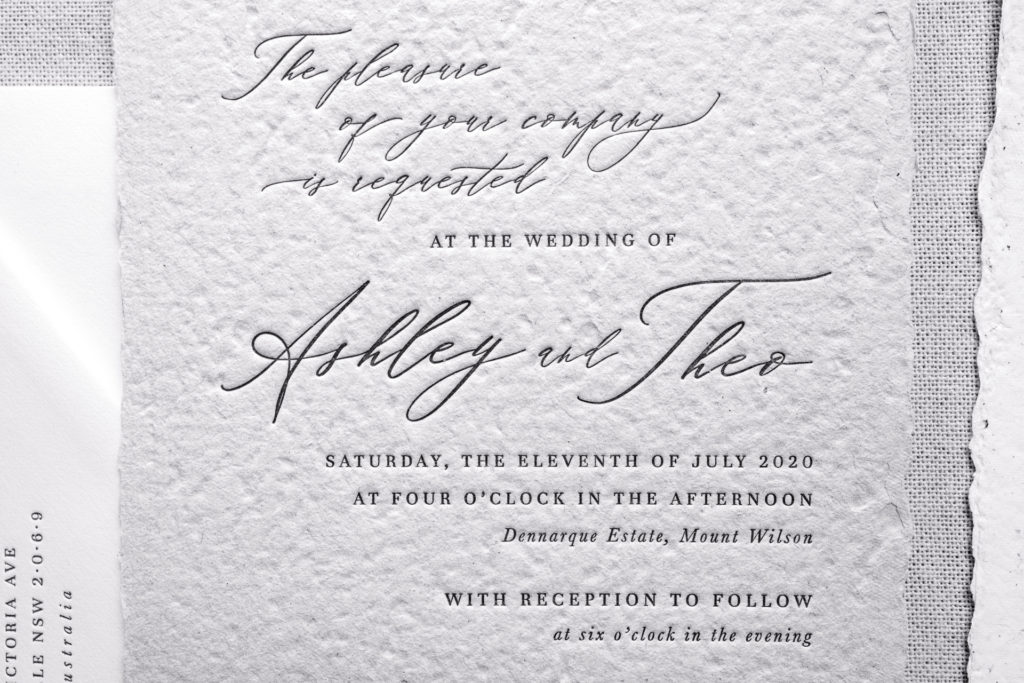 The pleasure
of your company
is requested
AT THE WEDDING OF
Ashley and Theo
SATURDAY, THE ELEVENTH OF JULY 2020
AT FOUR O’CLOCK IN THE AFTERNOON
Dennarque Estate, Mount Wilson
WITH RECEPTION TO FOLLOW
at six o’clock in the evening
CTORIA AVE
LE NSW 2·0·6·9
ustralia